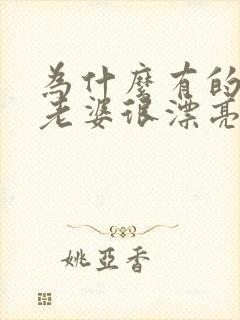 為什麼有的
老婆很漂亮
姚亞香